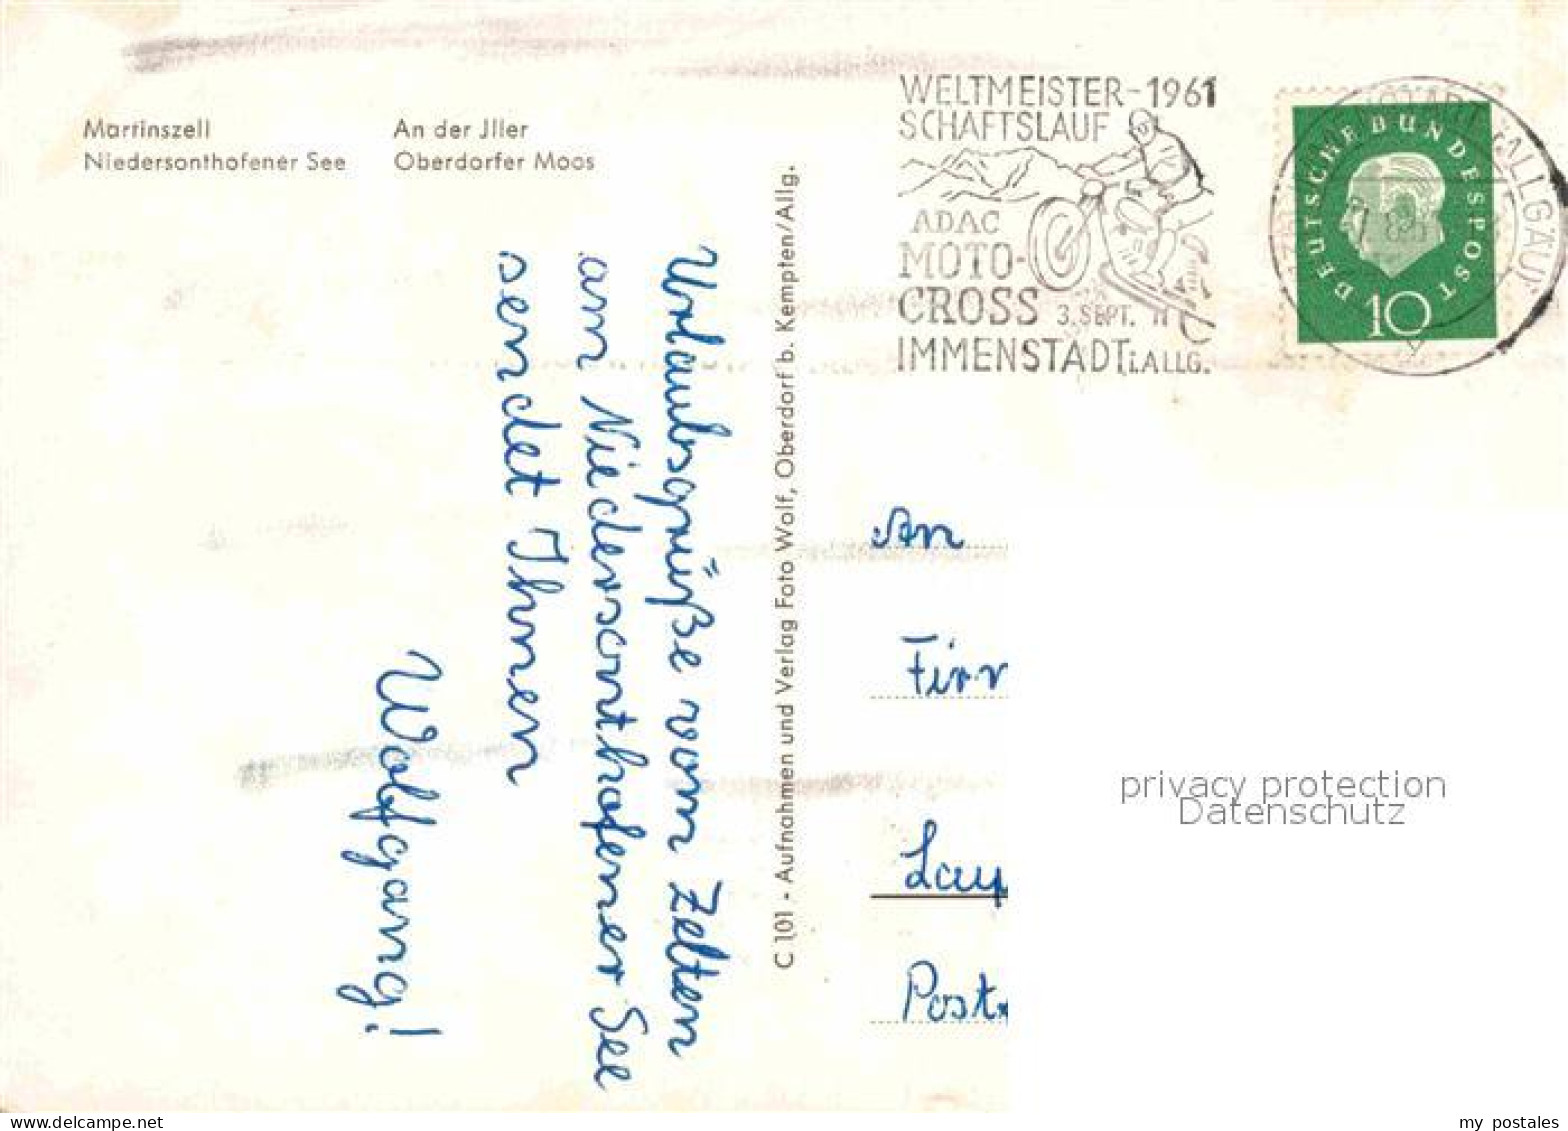 Martinszell
Niedersonthofener See
An der Jller
Oberdorfer Moos
WELTMEISTER-1961
SCHAFTSLAUF
ADAC
MOTO-
CROSS 3.SEPT.
IMMENSTADT i.ALLG.
DEUTSCHE BUNDESPOST
10
(ALLGÄU)
Urlaubsgrüße vom Zelten
am Niedersonthofener See
sendet Ihnen
Wolfgang!
C 101 - Aufnahmen und Verlag Foto Wolf, Oberdorf b. Kempten/Allg.
An
privacy protection
Datenschutz
my postales